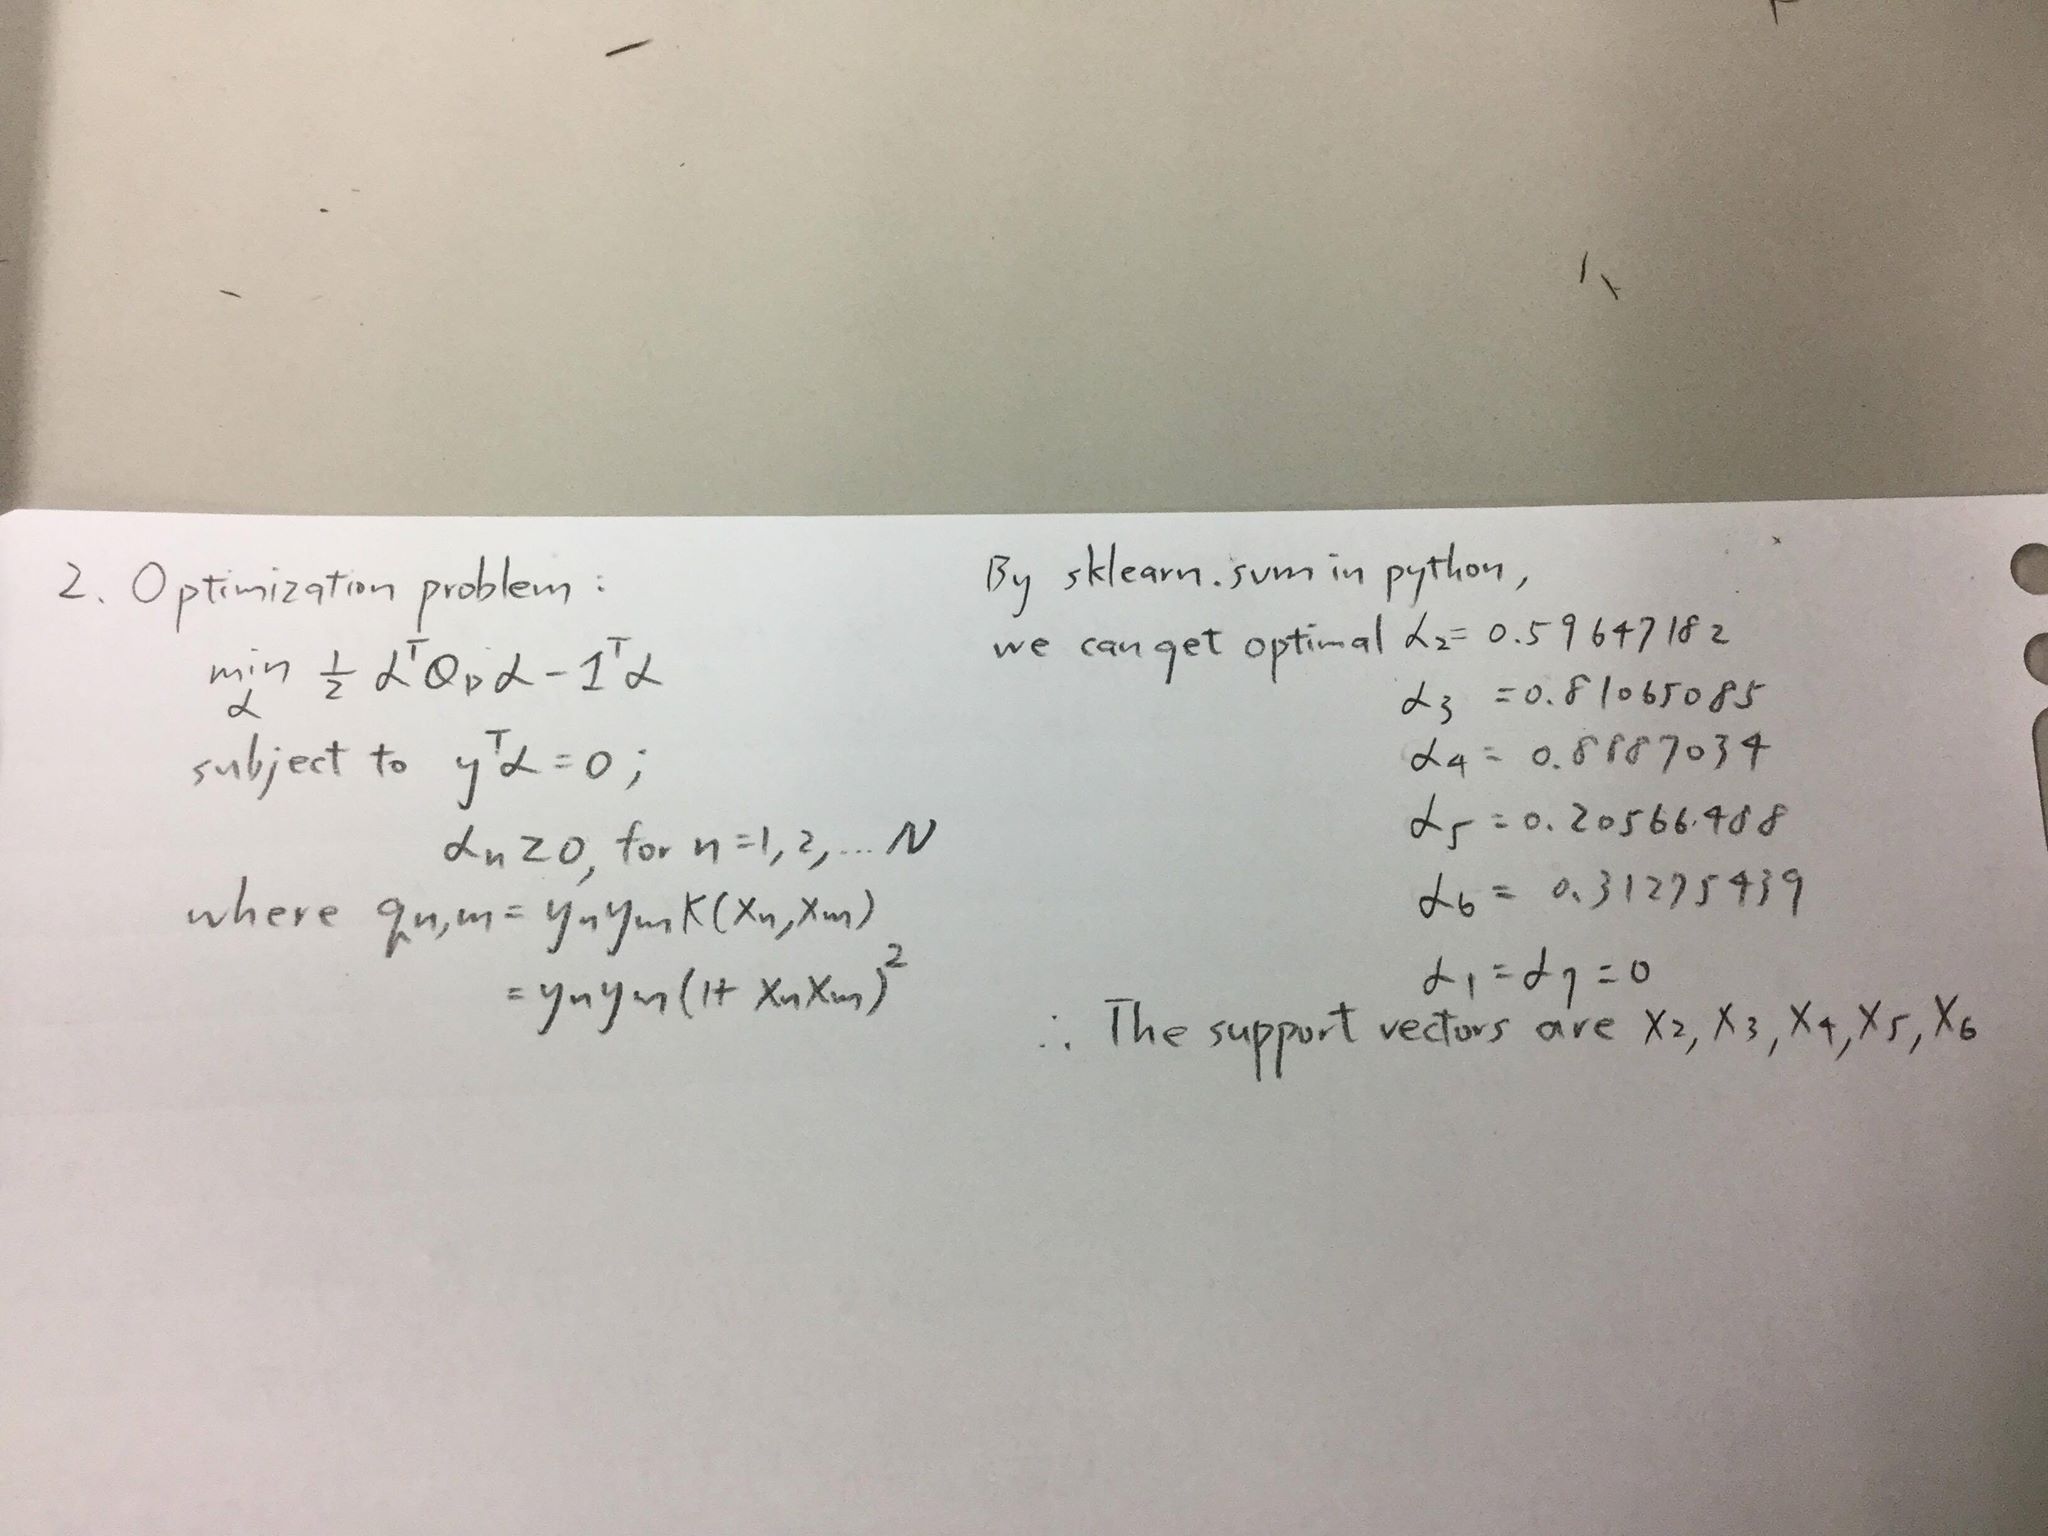 2. Optimization problem:
min 1/2 αᵀQ_Dα - 1ᵀα
α
subject to yᵀα = 0;
αn ≥ 0, for n = 1, 2, ... N
where qn,m = ynym K(xn, xm)
= ynym (1 + xnxm)²
By sklearn.svm in python,
we can get optimal α2 = 0.59647182
α3 = 0.81065085
α4 = 0.8887034
α5 = 0.20566488
α6 = 0.31275439
α1 = α7 = 0
∴ The support vectors are x2, x3, x4, x5, x6